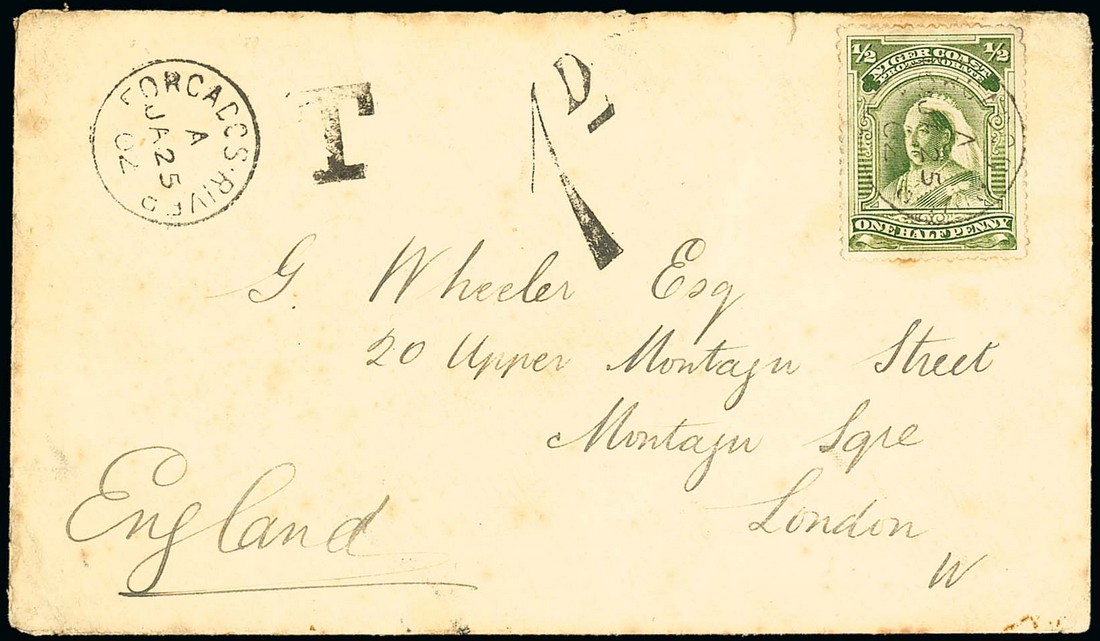 FORCADOS·RIVER
A
JA 25
02
T
1D.
1/2 1/2
NIGER COAST
PROTECTORATE
ONE HALF PENNY
A
JA 25
02
G. Wheeler Esq
20 Upper Montagu Street
Montagu Sqre
London
W
England